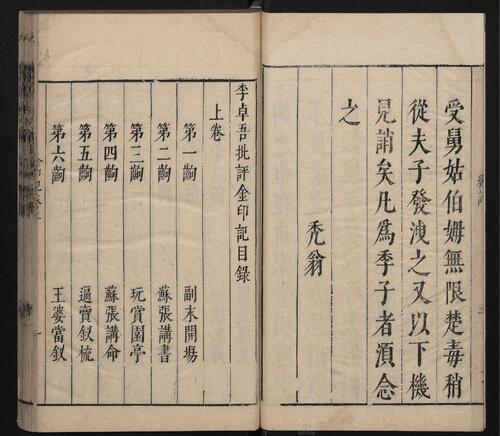 受舅姑伯姆無限楚毒稍
從夫子發洩之又以下機
見誚矣凡為季子者湏念
之
禿翁
李卓吾批評金印記目錄
上卷
第一齣 副末開場
第二齣 蘇張講書
第三齣 玩賞園亭
第四齣 蘇張講命
第五齣 逼賣釵梳
第六齣 王婆當釵